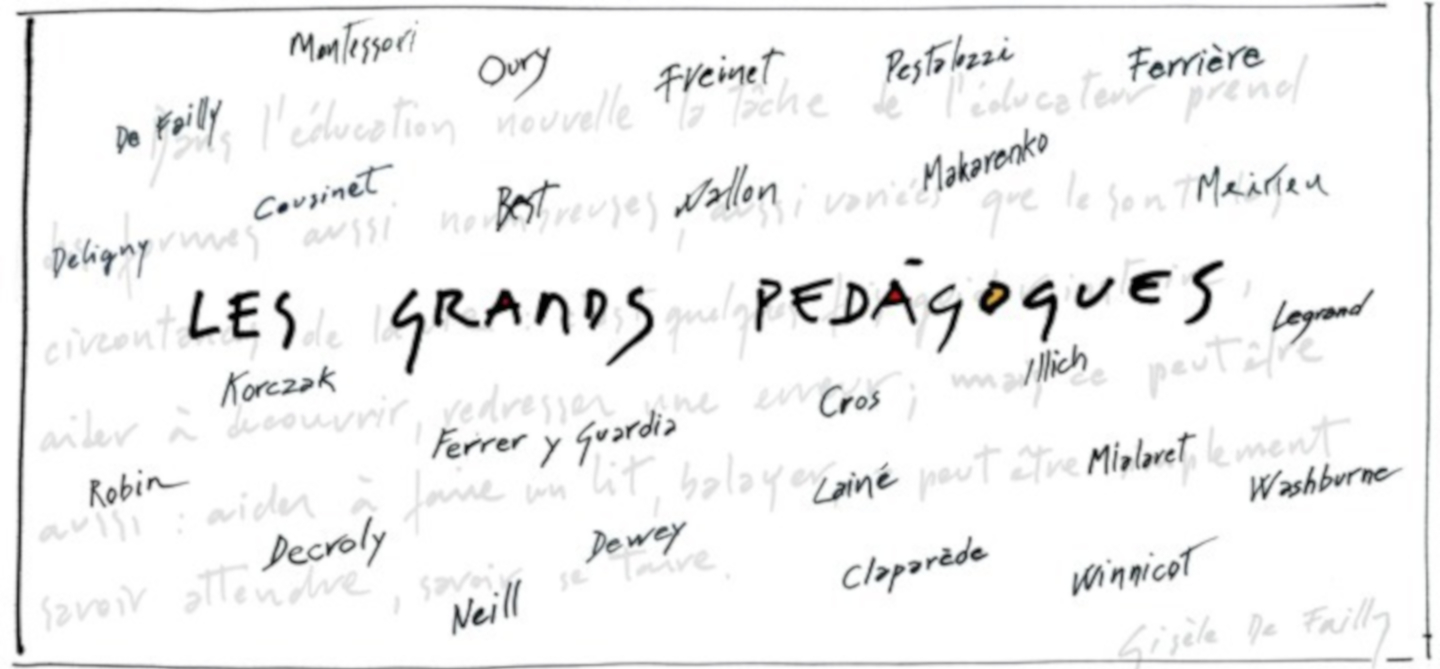 Montessori
Oury
Freinet
Pestalozzi
Ferrière
De Failly
Dans l'éducation nouvelle la tâche de l'éducateur prend
Cousinet
Best
Wallon
Makarenko
Meirieu
Deligny
des formes aussi nombreuses, aussi variées que le sont les
LES GRANDS PEDAGOGUES
circonstances de la
Legrand
Korczak
Cros
Illich
aider à découvrir, redresser une erreur; mais ce peut être
Ferrer y Guardia
Robin
Lainé
Mialaret
Washburne
aussi : aider à faire un lit, balayer, peut être simplement
Decroly
Dewey
Claparède
Winnicot
savoir attendre, savoir se taire.
Neill
Gisèle De Failly